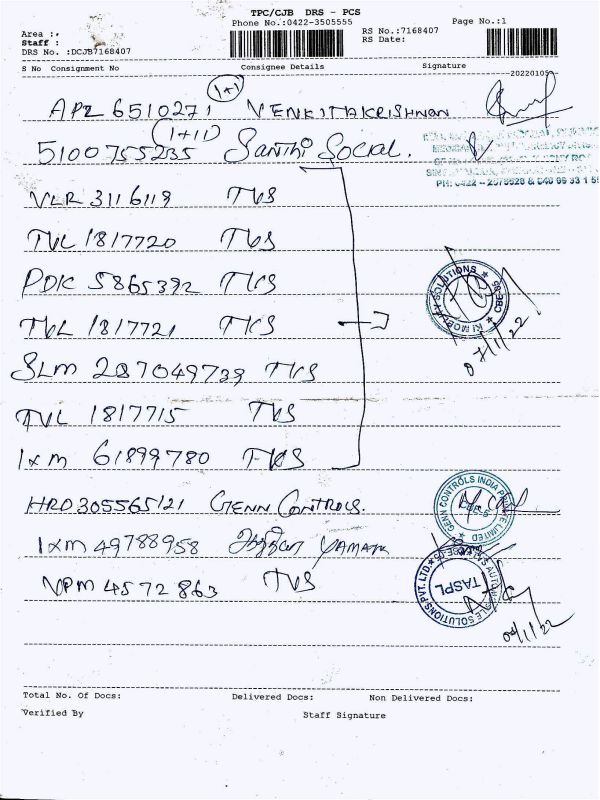 TPC/CJB DRS - PCS
Phone No.:0422-3505555
Page No.:1
Area :,
Staff :
DRS No. :DCJB7168407
RS No.:7168407
RS Date:
S No Consignment No Consignee Details Signature
20220105
(1+1)
APZ 6510271 VENKITAKRISHNAN
(1+11)
5100755235 Santhi Social.
PH: 0422 - 2575628 &
VLR 3116119 TVS
TVL 1817720 TVS
PDK 5865392 TVS
TVL 1817721 TVS
KI MOBILITY SOLUTIONS
07/1/22
SLM 287049739 TVS
TVL 1817715 TVS
IXM 61899780 TVS
HRD 305565121 GENN CONTROLS.
GENN CONTROLS INDIA PRIVATE LIMITED
IXM 49788958 YAMAHA
VPM 4572863 TVS
TASPL
SOLUTIONS PVT. LTD.
07/1/22
Total No. Of Docs: Delivered Docs: Non Delivered Docs:
Verified By Staff Signature